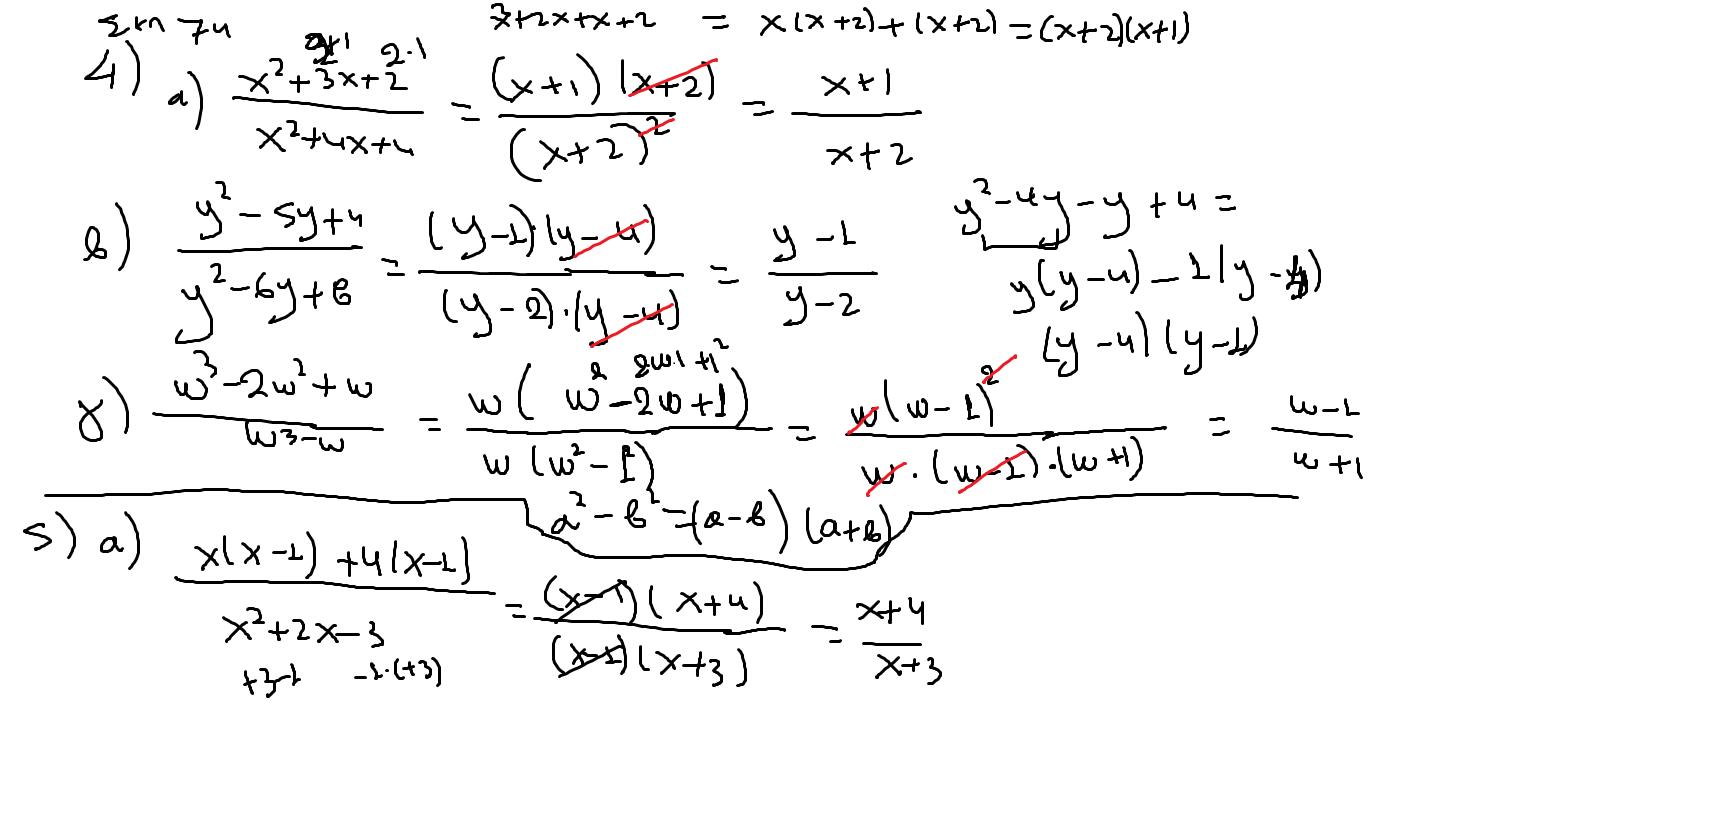 Σελ 74
3+2x+x+2 = x(x+2)+(x+2) = (x+2)(x+1)
2+1 2·1
4) α) x²+3x+2 / x²+4x+4 = (x+1)(x+2) / (x+2)² = x+1 / x+2
β) y²-5y+4 / y²-6y+8 = (y-1)·(y-4) / (y-2)·(y-4) = y-1 / y-2
y²-4y-y+4=
y(y-4)-1(y-4)
(y-4)(y-1)
2w·1 +1²
γ) w³-2w²+w / w³-w = w(w²-2w+1) / w(w²-1²) = w(w-1)² / w·(w-1)·(w+1) = w-1 / w+1
α²-β²=(α-β)(α+β)
5) α) x(x-1)+4(x-1) / x²+2x-3 = (x-1)(x+4) / (x-1)(x+3) = x+4 / x+3
+3-1 -1·(+3)